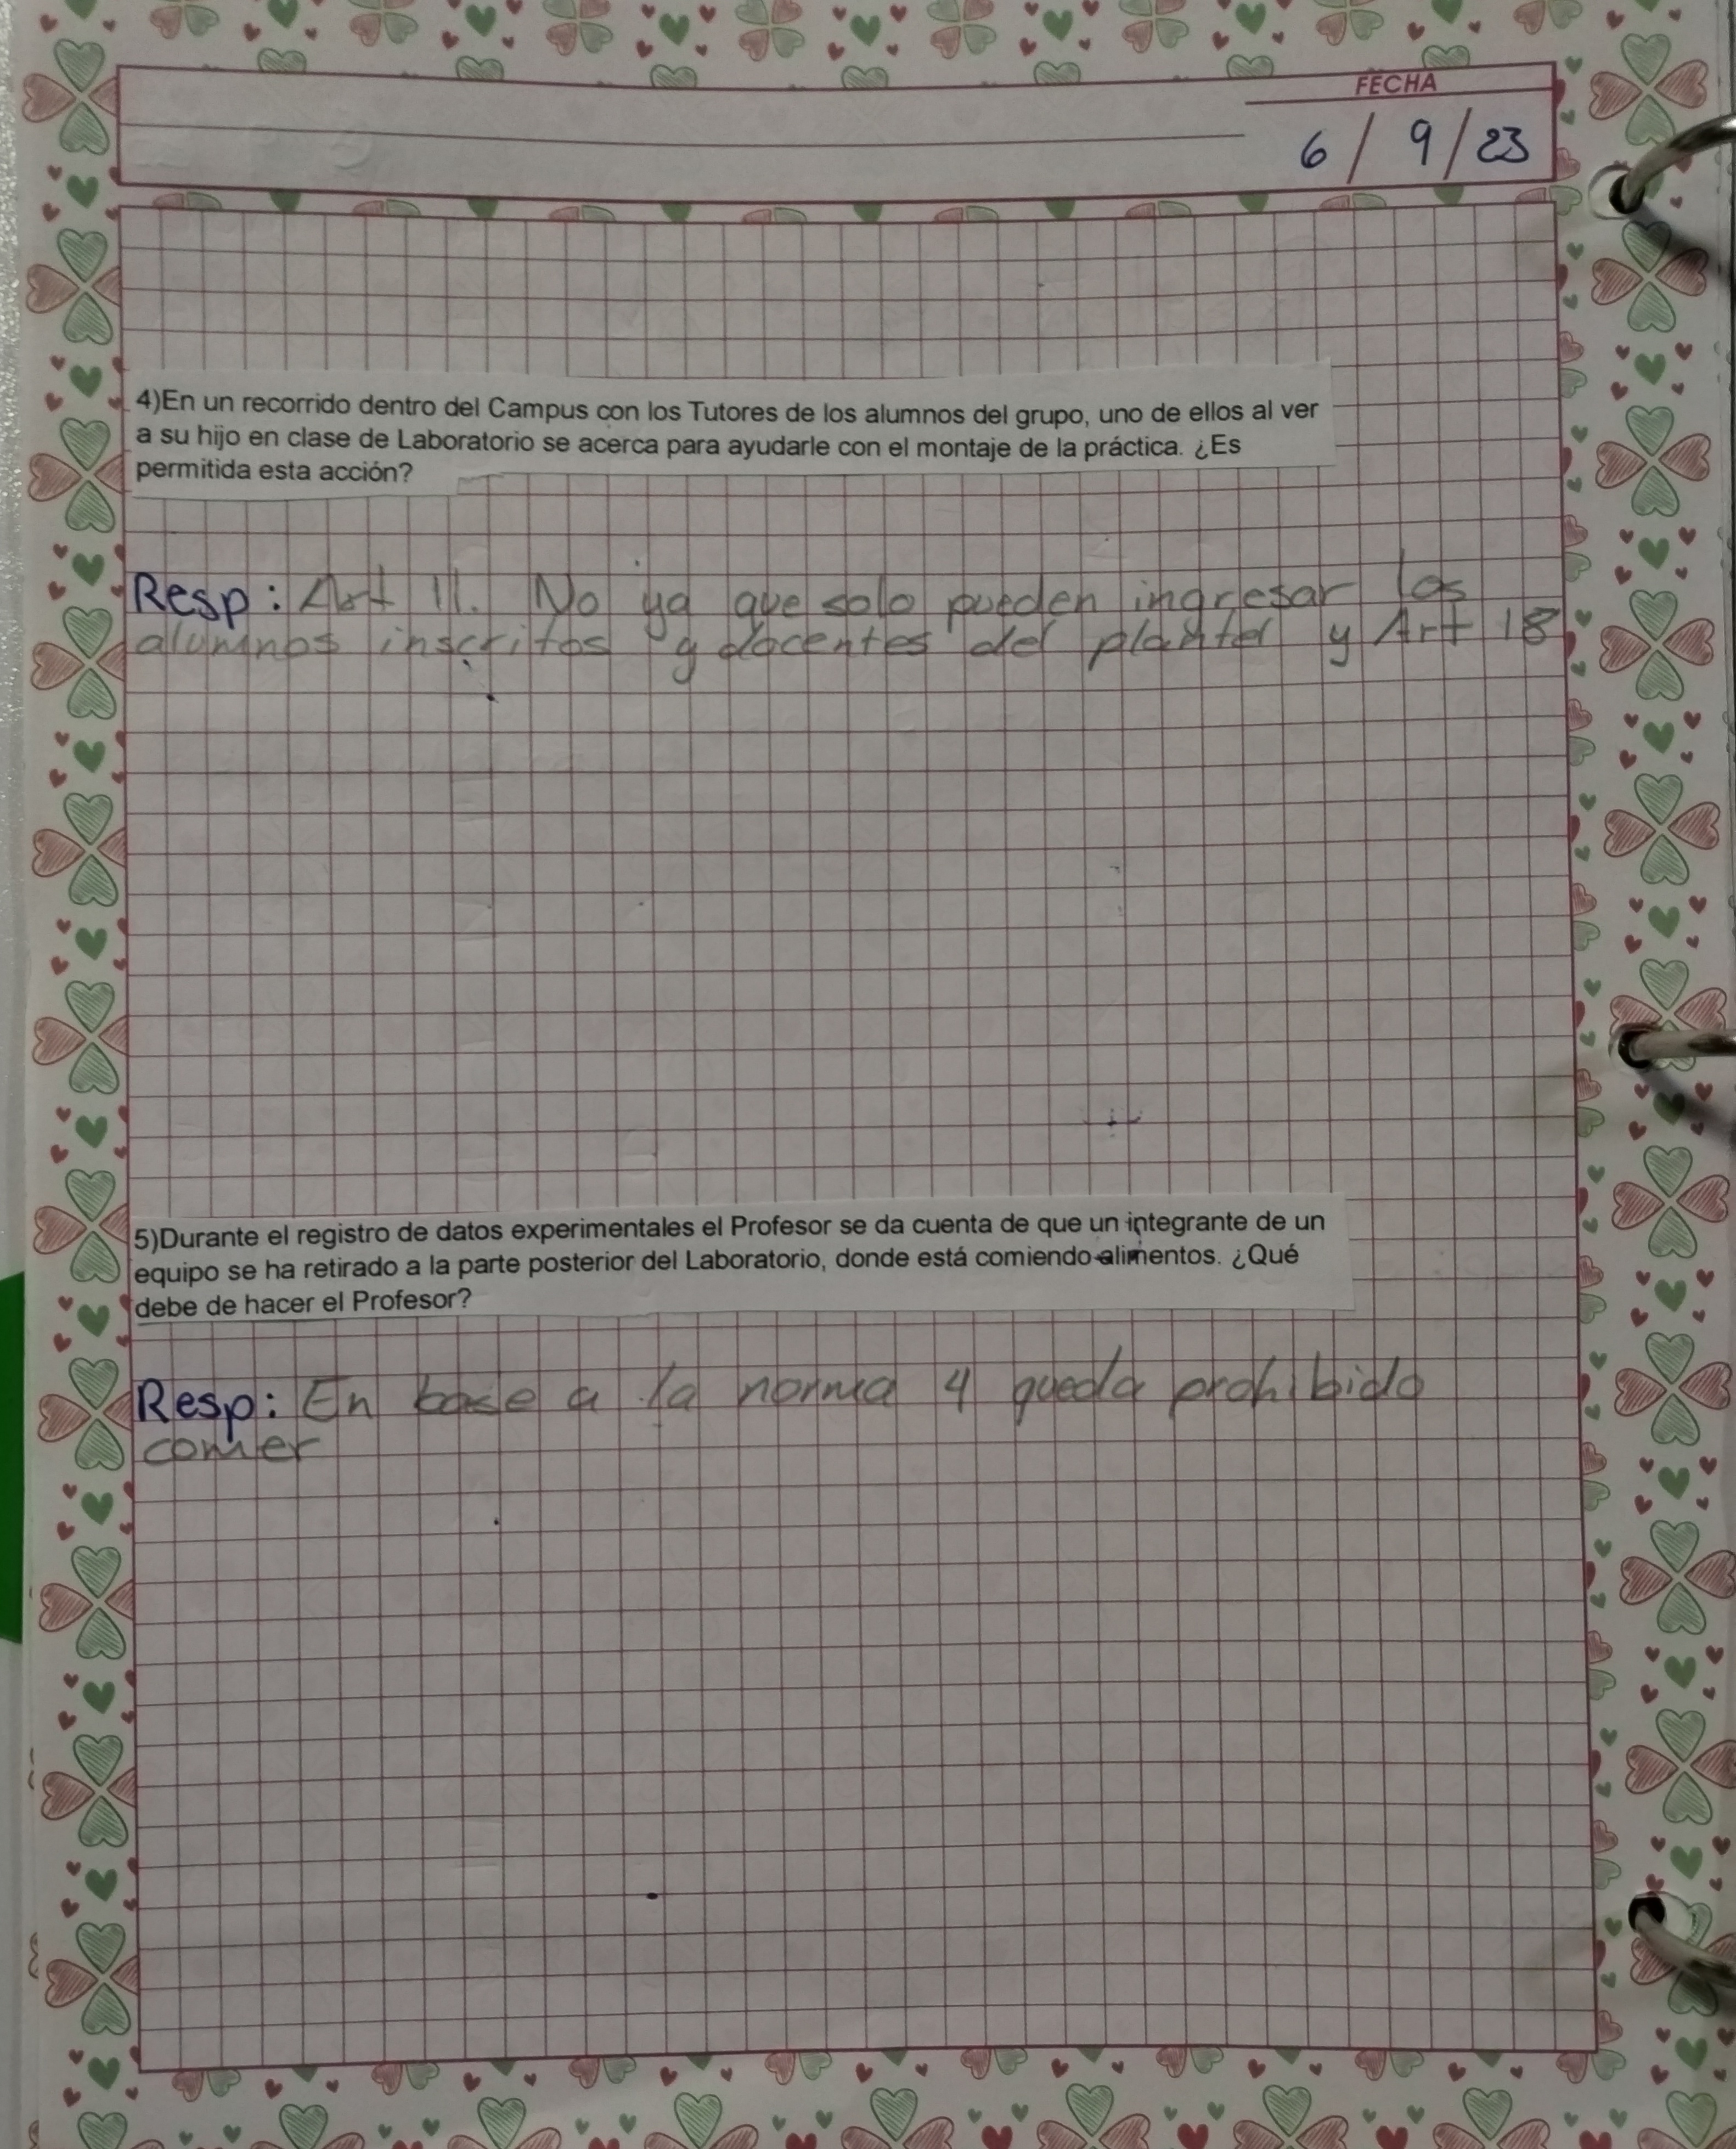 FECHA
6 / 9 / 23
4)En un recorrido dentro del Campus con los Tutores de los alumnos del grupo, uno de ellos al ver
a su hijo en clase de Laboratorio se acerca para ayudarle con el montaje de la práctica. ¿Es
permitida esta acción?
Resp: Art 11. No ya que solo pueden ingresar los
alumnos inscritos y docentes del plantel y Art 18
5)Durante el registro de datos experimentales el Profesor se da cuenta de que un integrante de un
equipo se ha retirado a la parte posterior del Laboratorio, donde está comiendo alimentos. ¿Qué
debe de hacer el Profesor?
Resp: En base a la norma 4 queda prohibido
comer